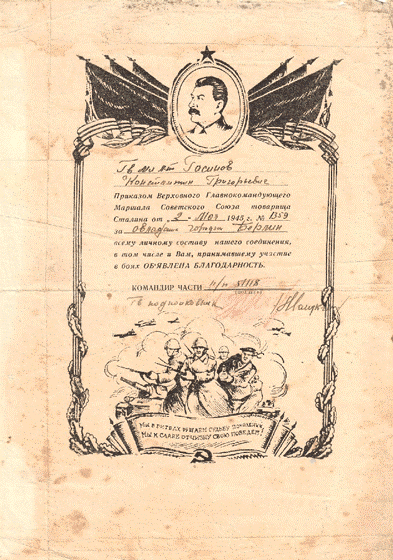 Гв мл лт Госипов
Константин Григорьевич
Приказом Верховного Главнокомандующего
Маршала Советского Союза товарища
Сталина от 2 Мая 1945 г. № 1359
за овладение города Берлин
всему личному составу нашего соединения,
в том числе и Вам, принимавшему участие
в боях ОБ'ЯВЛЕНА БЛАГОДАРНОСТЬ.
КОМАНДИР ЧАСТИ п/п
Гв подполковник
МЫ В БИТВАХ РЕШАЕМ СУДЬБУ ПОКОЛЕНИЙ,
МЫ К СЛАВЕ ОТЧИЗНУ СВОЮ ПОВЕДЕМ!